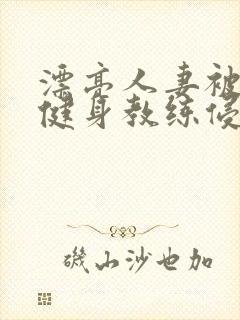 漂亮人妻被
健身教练侵
矶山沙也加